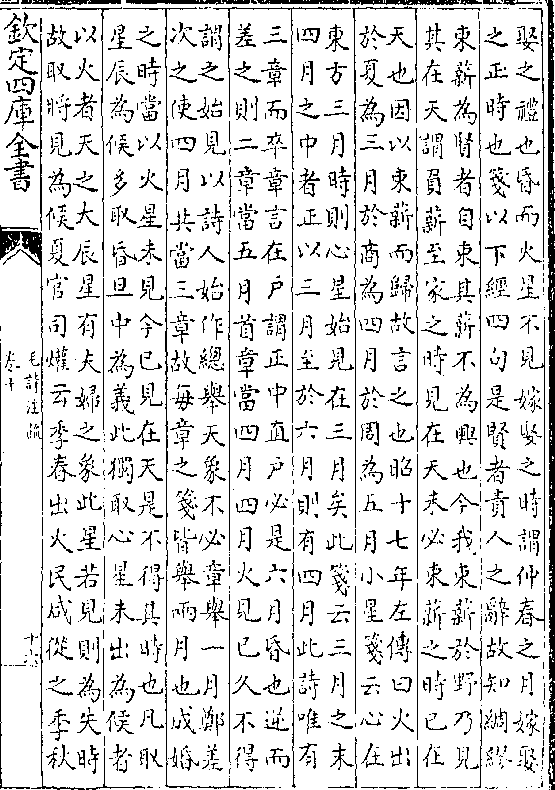 娶之禮也昏而火星不見嫁娶之時謂仲春之月嫁娶
之正時也箋以下經四句是賢者責人之辭故知綢繆
束薪為賢者自束其薪不為興也今我束薪於野乃見
其在天謂負薪至家之時見在天未必束薪之時已在
天也因以束薪而歸故言之也昭十七年左傳曰火出
於夏為三月於商為四月於周為五月小星箋云心在
東方三月時則心星始見在三月矣此箋云三月之末
四月之中者正以三月至於六月則有四月此詩唯有
三章而卒章言在戶謂正中直戶必是六月昏也逆而
差之則二章當五月首章當四月四月火見已久不得
謂之始見以詩人始作總舉天象不必章舉一月鄭差
次之使四月共當三章故每章之箋皆舉兩月也成婚
之時當以火星未見今已見在天是不得其時也凡取
星辰為候多取昏旦中為義此獨取心星未出為候者
以火者天之大辰星有夫婦之象此星若見則為失時
故取將見為候夏官司爟云季春出火民咸從之季秋
欽定四庫全書
毛詩注疏
卷十